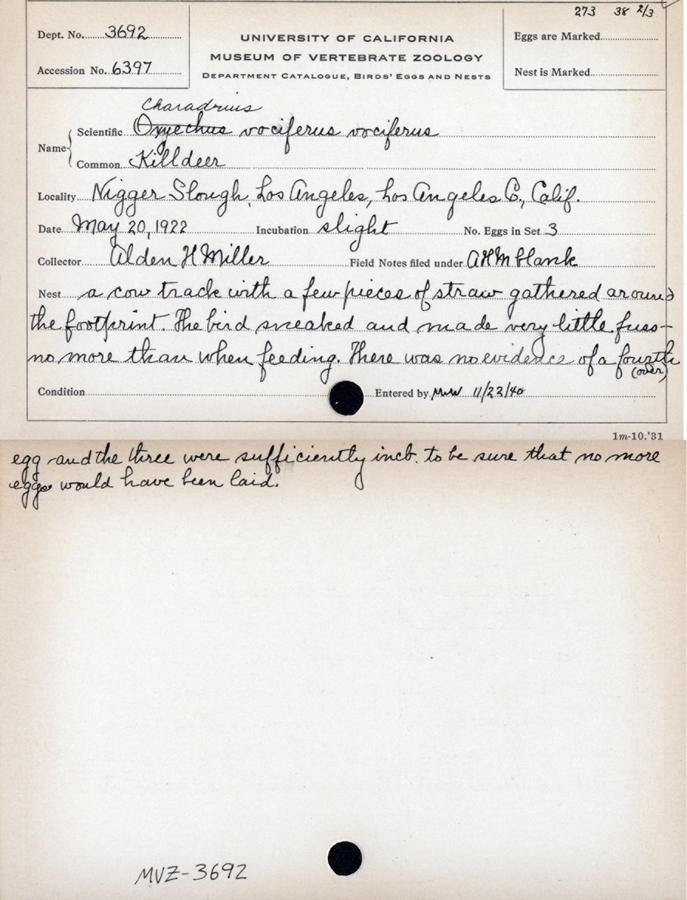 273 38 2/3
Dept. No. 3692
UNIVERSITY OF CALIFORNIA
Eggs are Marked
MUSEUM OF VERTEBRATE ZOOLOGY
Accession No. 6397
DEPARTMENT CATALOGUE, BIRDS' EGGS AND NESTS
Nest is Marked
Charadrius
Name Scientific Oxyechus vociferus vociferus
Common Killdeer
Locality Nigger Slough, Los Angeles, Los Angeles Co., Calif.
Date May 20, 1922 Incubation slight No. Eggs in Set 3
Collector Alden H Miller Field Notes filed under AHM blank
Nest a cow track with a few pieces of straw gathered around
the footprint. The bird sneaked and made very little fuss—
no more than when feeding. There was no evidence of a fourth
(over)
Condition Entered by MWW 11/22/40
1m-10,'31
egg and the three were sufficiently incb. to be sure that no more
eggs would have been laid.
MVZ-3692